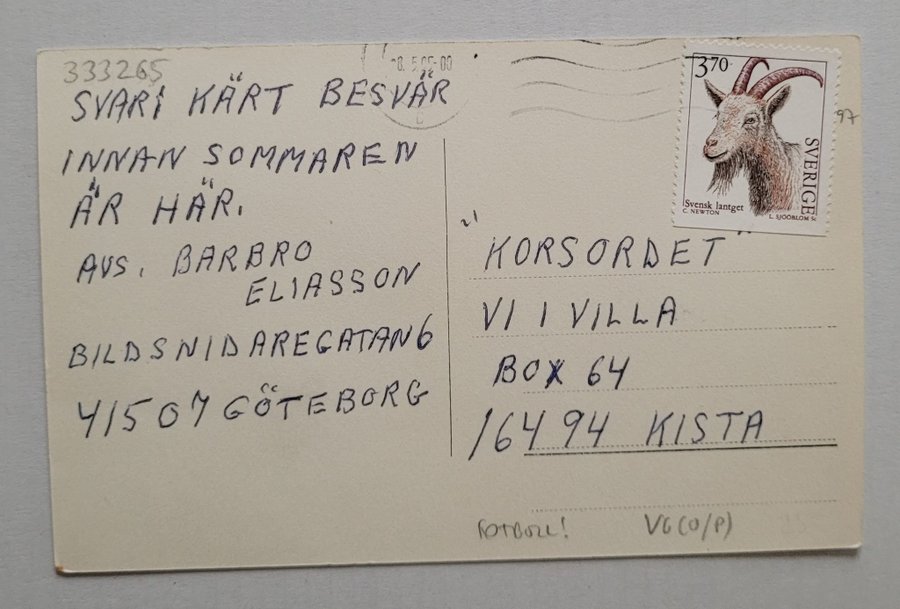 333265
SVAR: KÄRT BESVÄR
INNAN SOMMAREN
ÄR HÄR.
AVS. BARBRO
ELIASSON
BILDSNIDAREGATAN 6
41507 GÖTEBORG
3.70
SVERIGE
Svensk lantget
C. NEWTON L. SJÖÖBLOM Sc
97
"KORSORDET"
VI I VILLA
BOX 64
16494 KISTA
FOTBOLL! VG(O/P)